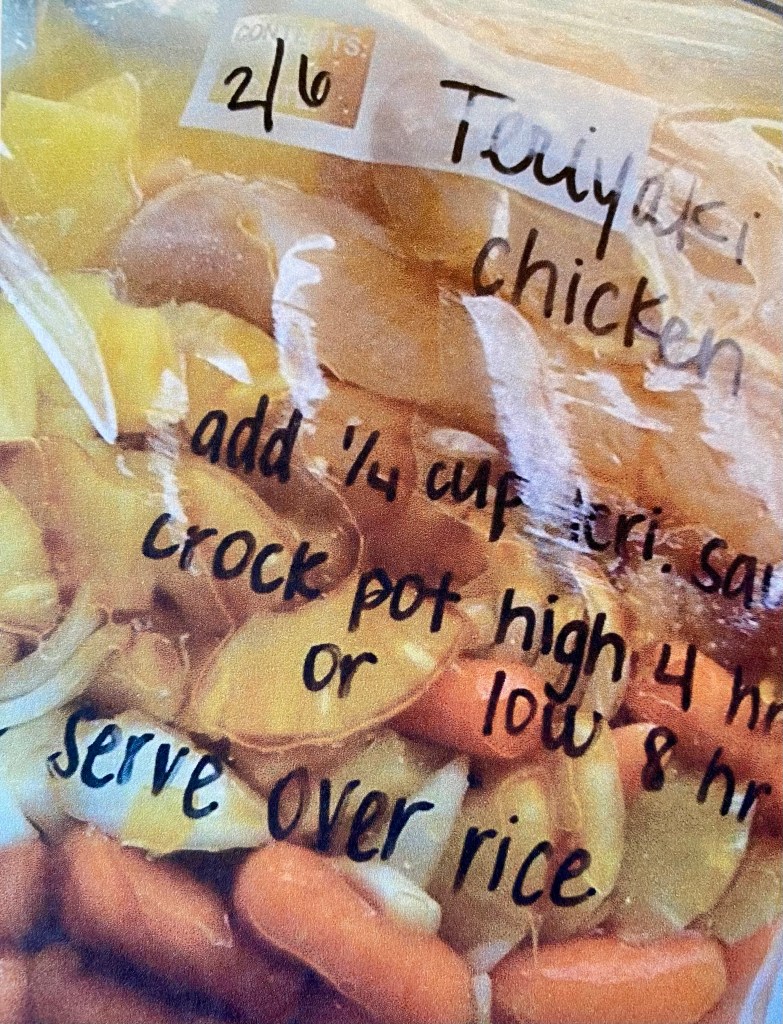 CONTENTS:
2/6 Teriyaki
chicken
add 1/4 cup teri. sau
crock pot high 4 hr
or low 8 hr
serve over rice